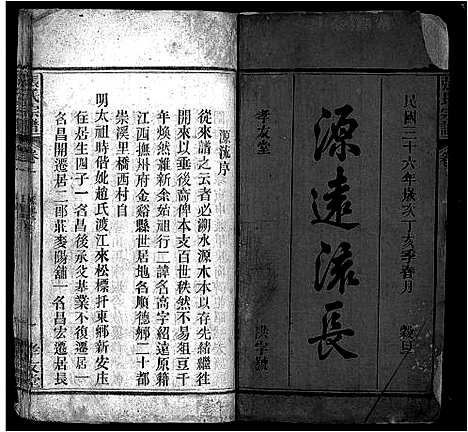 民國三十六年歲次丁亥季春月　穀旦
源遠流長
孝友堂
源流序
從來譜之云者必溯水源木本以存先緒繼往
開來以垂後裔俾本支百世秩然不易祖豆千
年煥然維新余始祖行二諱名高字紹達原籍
江西撫州府金谿縣世居地名順德鄉二十都
崇溪里橋西村自
明太祖時偕妣趙氏渡江來松標扦東鄉新安庄
在住居生四子一名昌後承父基業不復遷居一
名昌開遷居二郎莊麥陽舖一名昌宏遷居長
張氏宗譜